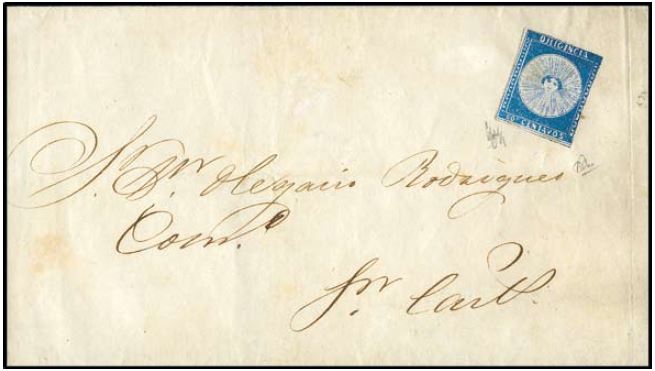 DILIGENCIA
60 CENTAVOS
Sr. Dn. Olegario Rodrigues
Comte
Sn. Carls.